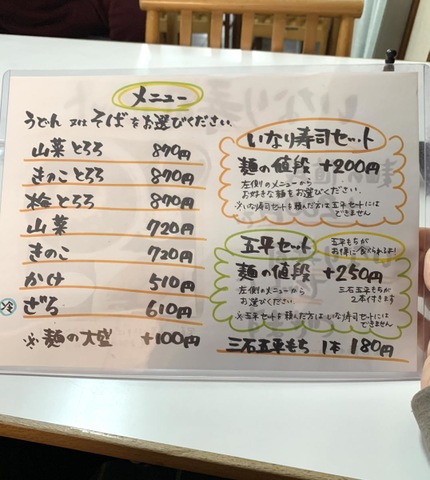 メニュー
うどん 又は そばをお選びください。
山菜とろろ 870円
きのことろろ 870円
梅とろろ 870円
山菜 720円
きのこ 720円
かけ 510円
冷 ざる 610円
※麺の大盛 +100円
いなり寿司セット
麺の値段 +200円
左側のメニューから
お好きな麺をお選びください。
※いなり寿司セットを頼んだ方は五平セットには
できません
五平セット
五平もちが
お得に食べられるよ!
麺の値段 +250円
左側のメニューから
お選びください。
三石五平もちが
2本付きます
※五平セットを頼んだ方はいなり寿司セットには
できません
三石五平もち 1本 180円